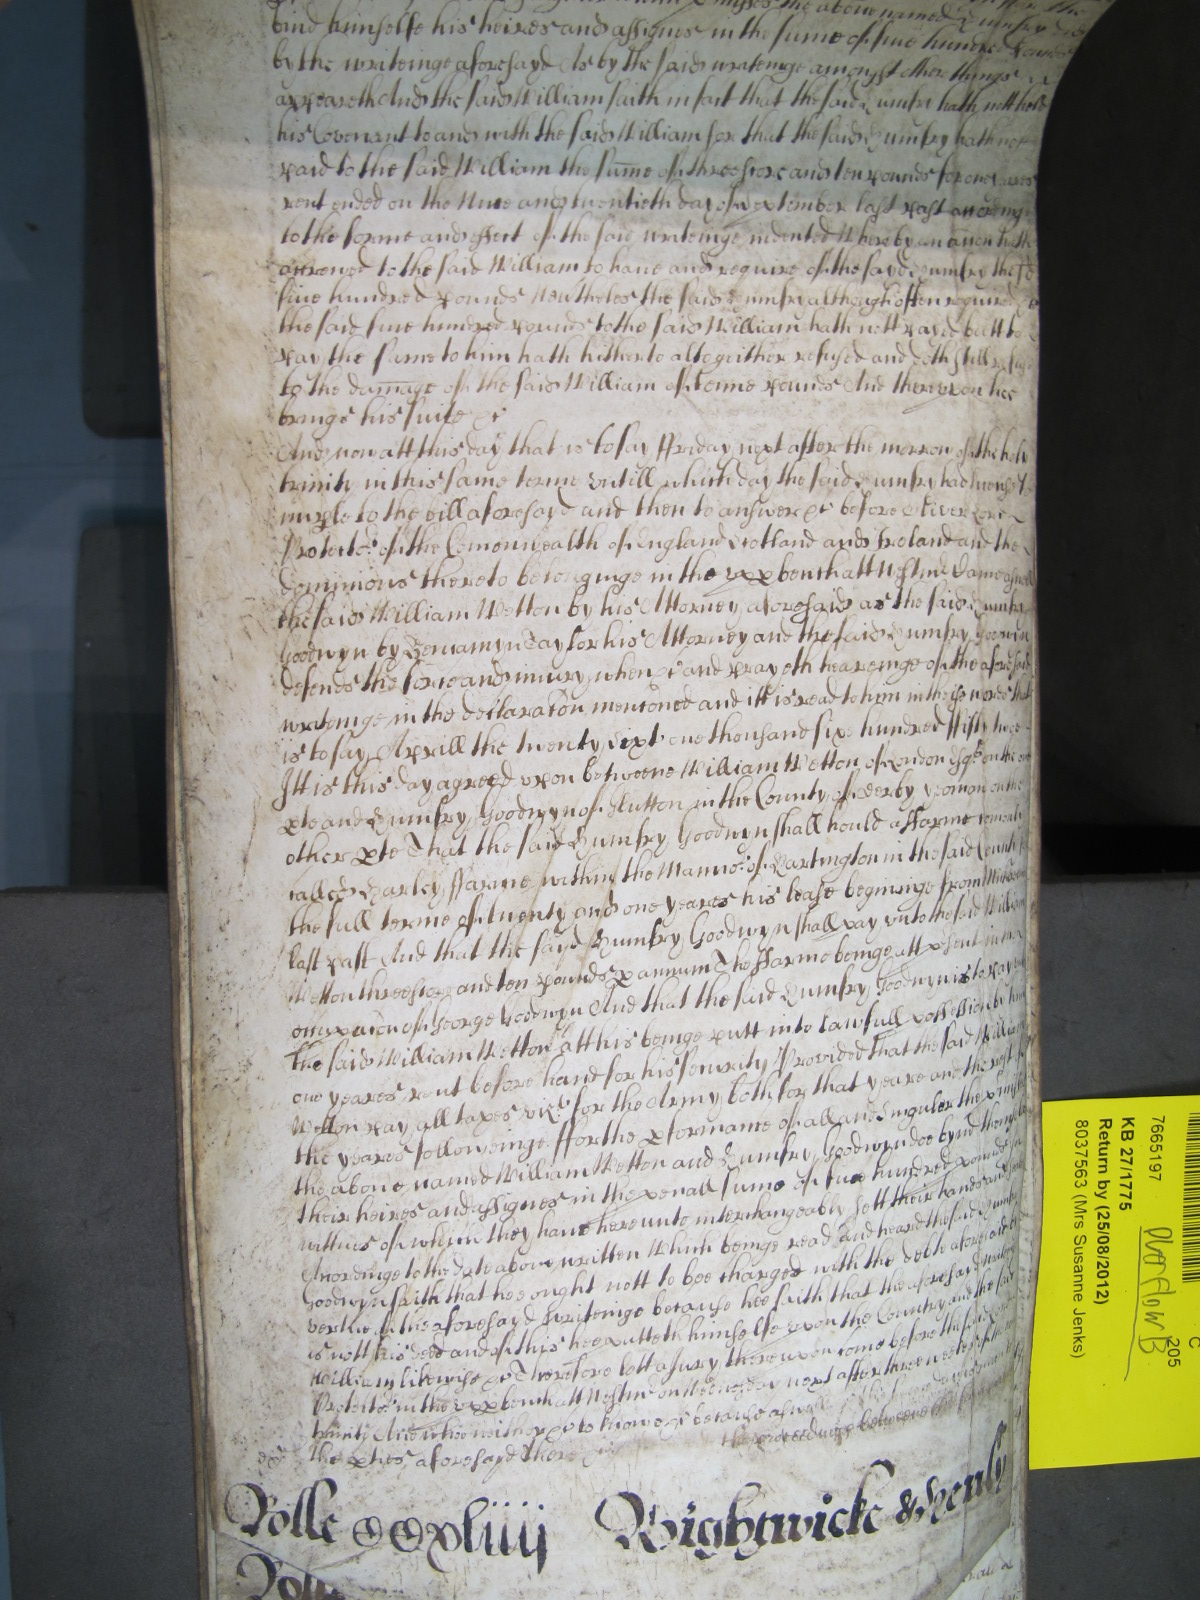 the above named Humfry did
bind himselfe his heires and assignes in the sume of five hundred pounds
by the writeinge aforesayd As by the said writeinge amongst other things
appeareth And the said William saith in fact that the said Humfry hath nott held
his Covenant to and with the said William for that the said Humfry hath not
paid to the said William the sume of threescore and ten pounds for one yeares
rent ended on the Nine and twentieth day of September last past accordinge
to the forme and effect of the said writeinge indented Whereby an accon hath
accrewed to the said William to have and require of the sayd Humfry the sd
five hundred pounds Nevtheles the said Humfry although often required
the said five hundred pounds to the said William hath nott payed butt to
pay the same to him hath hitherto altogeither refused and doth still refuse
to the damage of the said William of tenne pounds And thereupon hee
brings his suite &c
And now att this day that is to say Ffriday next after the morrow of the holy
trinity in this same terme untill which day the said Humfry had lycense to
imple to the bill aforesayd and then to answer &c before Oliver Lord
Protector of the Comonwealth of England Scotland and Ireland and the
Dominions thereto belonginge in the upp bench att Westmr Came aswell
the said William Wetton by his Attorney aforesaid as the said Humfry
Goodwyn by Beniamyn Taylor his Attorney and the said Humfry Goodwyn
defends the force and iniury when &c and prayeth heareinge of the aforesaid
writeinge in the declaracon menconed and itt is read to him in theis words that
is to say Aprill the twenty sixt one thousand six hundred fifty
Itt is this day agreed upon betweene William Wetton of London Esqr on the one
pte and Humfry Goodwyn of Slutton in the County of Derby yeoman on the
other pte That the said Humfry Goodwyn shall hould a ffarme comonly
called Harley ffarme within the Mannor of Hartington in the said County for
the full terme of twenty and one yeares his lease begininge from
last past And that the sayd Humfry Goodwyn shall pay unto the said William
Wetton threescore and ten pounds p annum The ffarme beinge att psent in the
occupacon of George Goodwyn And that the said Humfry Goodwyn is to pay
the said William Wetton att his beinge putt into lawfull possession by him
one yeares rent before hand for his security Provided that the said William
Wetton pay all taxes vizt for the Army both for that yeare and the rest of
the yeares followeinge ffor the pformance of all and singuler the pmisses
the above named William Wetton and Humfry Goodwyn doe bynd themselves
their heires and assignes in the penall sume of five hundred pounds In
wittnes of which they have hereunto interchangeably sett their hands and
Accordinge to the date above written Which beinge read and heard the said Humfry
Goodwyn saith that hee ought nott to bee charged with the debte aforesaid by
vertue of the aforesayd writeinge because hee saith that the aforesayd writeinge
is nott his deed and of this hee putteth himselfe upon the Country and the said
William likewise &c Therefore lett a Jury thereupon come before the said Lord
Protector in the upp bench att Westmr on Wednesday next after three weekes of the
trinity And who neither &c to knowe &c because aswell
the pties aforesayd there
Rolle CCxliiij Rightwicke & Henly
Rolle
7665197
KB 27/1775
Return by (25/08/2012)
8037563 (Mrs Susanne Jenks)
Overflow B
205
C